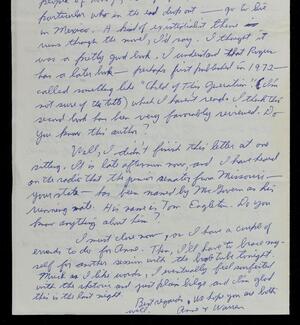 people of
particular who in the end drop out — go to live
in Mexico. A kind of existentialist theme is
runs through the novel, I'd say. I thought it
was a pretty good book. I understand that
has a later book — perhaps first published in 1972 —
called something like "Child of this Operation." (I'm
not sure of the title) which I haven't read. I think this
second book has been very favorably reviewed. Do
you know this author?
Well, I didn't finish this letter at one
sitting. It is late afternoon now, and I have heard
on the radio that the junior senator from Missouri —
your state — has been named by McGovern as his
running mate. His name is Tom Eagleton. Do you
know anything about him?
I must close now, as I have a couple of
errands to do for Anne. Then, I'll have to brace my-
self for another session with the boob tube tonight.
Much as I like words, I eventually feel surfeited
with the rhetoric and just plain bilge and I'm glad
this is the last night.
Best regards, + we hope you are both
well.
Anne + Warren